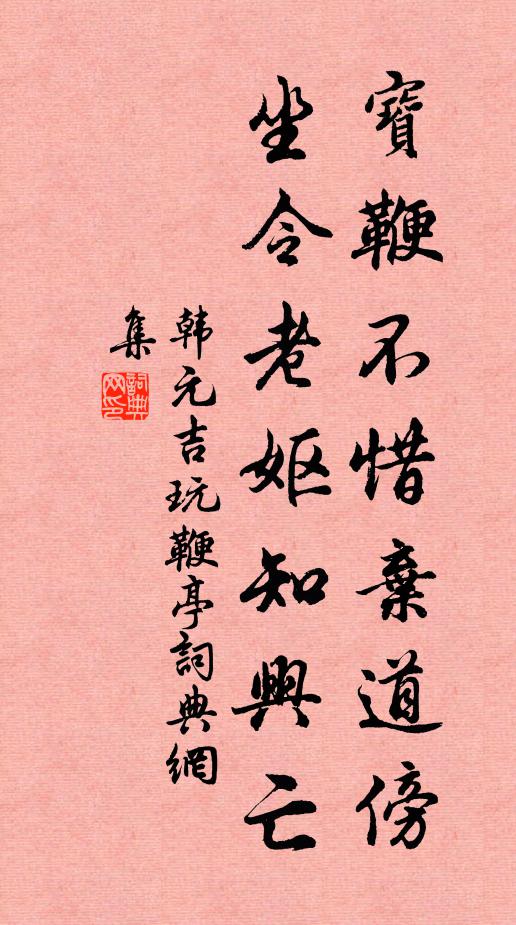 寶鞭不惜棄道傍
坐令老妪知興亡
韩元吉玩鞭亭詞典網
集
詞典网印